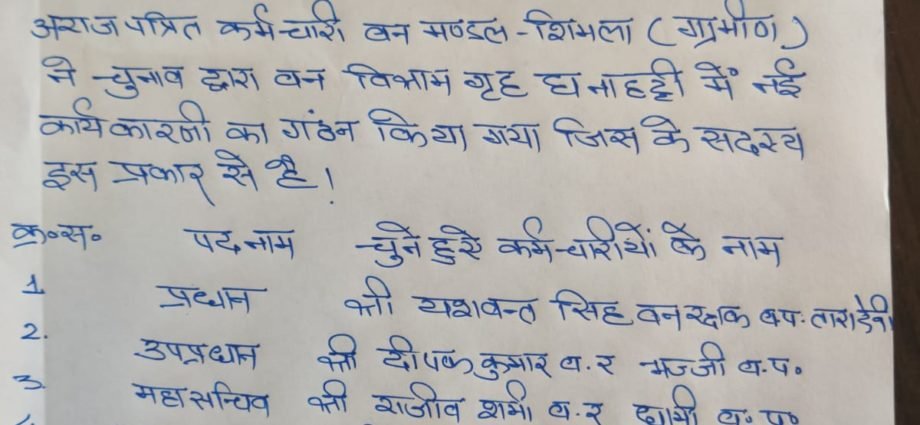 अराजपत्रित कर्मचारी वन मण्डल - शिमला (ग्रामीण)
ने चुनाव द्वारा वन विश्राम गृह घनाहट्टी में नई
कार्यकारणी का गंठन किया गया जिस के सदस्य
इस प्रकार से है।
क्र॰स॰ पदनाम चुने हुऐ कर्मचारीयों के नाम
1. प्रधान श्री यशवन्त सिंह वनरक्षक व.प. तारादेवी
2. उपप्रधान श्री दीपक कुमार व.र भज्जी व.प.
3. महासचिव श्री राजीव शर्मा व.र धामी व॰ प॰